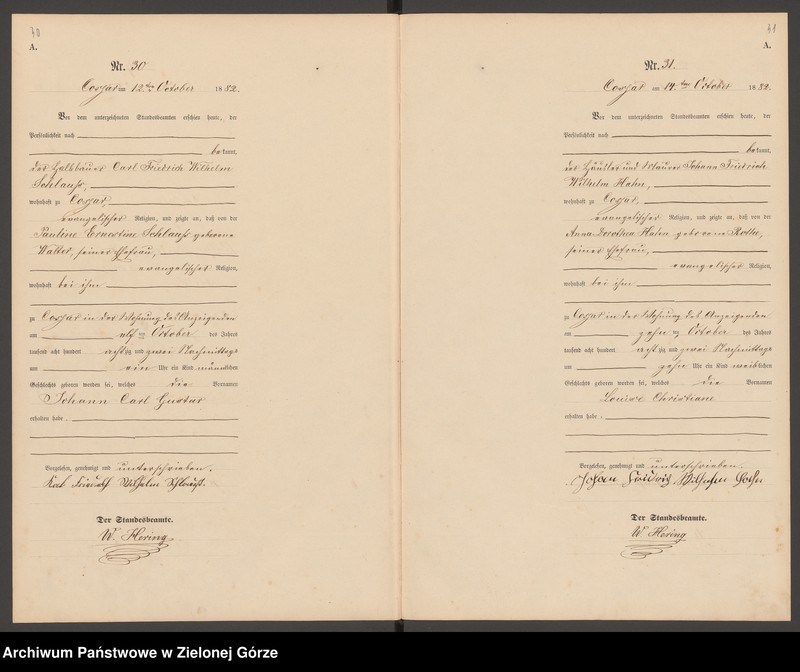 30
A.
Nr. 30
Cossar am 12ten October 1882.
Vor dem unterzeichneten Standesbeamten erschien heute, der
Persönlichkeit nach
bekannt,
der Halbbauer Carl Friedrich Wilhelm
Schlauß,
wohnhaft zu Cossar,
evangelischer Religion, und zeigte an, daß von der
Pauline Ernestine Schlauß geborene
Walter, seiner Ehefrau,
evangelischer Religion,
wohnhaft bei ihm
zu Cossar in der Wohnung des Anzeigenden
am elften October des Jahres
tausend acht hundert achtzig und zwei Nachmittags
um ein Uhr ein Kind männlichen
Geschlechts geboren worden sei, welches die Vornamen
Johann Carl Gustav
erhalten habe.
Vorgelesen, genehmigt und unterschrieben.
Karl Friedrich Wilhelm Schlauß.
Der Standesbeamte.
W. Hering
31
A.
Nr. 31.
Cossar am 14ten October 1882.
Vor dem unterzeichneten Standesbeamten erschien heute, der
Persönlichkeit nach
bekannt,
der Häusler und Maurer Johann Friedrich
Wilhelm Hahn,
wohnhaft zu Cossar,
evangelischer Religion, und zeigte an, daß von der
Anna Dorothea Hahn geborene Rothe,
seiner Ehefrau,
evangelischer Religion,
wohnhaft bei ihm
zu Cossar in der Wohnung des Anzeigenden
am zehn ten October des Jahres
tausend acht hundert achtzig und zwei Nachmittags
um zehn Uhr ein Kind weiblichen
Geschlechts geboren worden sei, welches die Vornamen
Louise Christiane
erhalten habe.
Vorgelesen, genehmigt und unterschrieben.
Wilhelm
Der Standesbeamte.
W. Hering
Archiwum Państwowe w Zielonej Górze